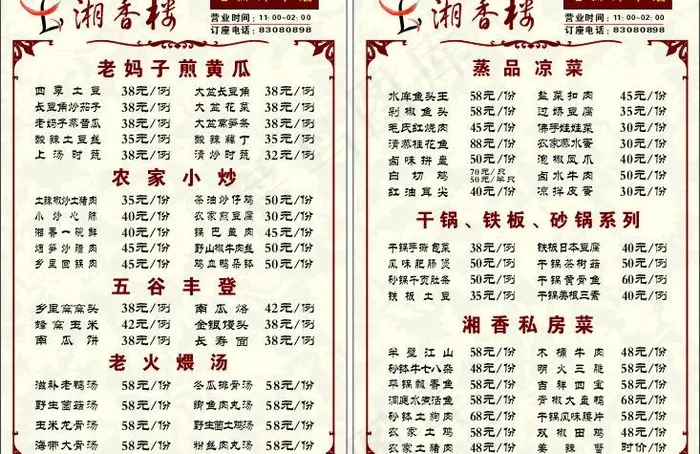 湘香楼
营业时间：11:00~02:00
订座电话：83080898
老妈子煎黄瓜
四季土豆 38元/例 大盆长豆角 38元/例
长豆角炒茄子 38元/例 大盆花菜 38元/例
老妈子蒸黄瓜 38元/例 大盆莴笋条 38元/例
酸辣土豆丝 38元/例 酸辣藕丁 35元/例
上汤时蔬 38元/例 清炒时蔬 32元/例
农家小炒
土辣椒炒土猪肉 35元/份 茶油炒仔鸡 50元/份
小炒心肺 40元/份 农家煎豆腐 30元/份
湘香一碗鲜 40元/份 锅巴盖肉 40元/份
烟笋炒腊肉 45元/份 野山椒牛肉丝 50元/份
乡里回锅肉 45元/份 鸡血鸭杂钵 50元/份
五谷丰登
乡里窝窝头 38元/例 南瓜烙 42元/例
蜂窝玉米 42元/例 金银馒头 38元/例
南瓜饼 38元/例 长寿面 38元/例
老火煨汤
滋补老鸭汤 58元/份 冬瓜排骨汤 58元/份
野生菌菇汤 58元/份 鲫鱼肉丸汤 58元/份
玉米龙骨汤 58元/份 野生土鸡汤 58元/份
海带大骨汤 58元/份 粉丝肉丸汤 58元/份
湘香楼
营业时间：11:00~02:00
订座电话：83080898
蒸品凉菜
水库鱼头王 58元/份 盐菜扣肉 45元/份
剁椒鱼头 58元/份 过桥豆腐 35元/份
毛氏红烧肉 45元/份 佛手娃娃菜 30元/份
清蒸桂花鱼 88元/份 农家蒸水蛋 30元/份
卤味拼盘 50元/份 泡椒凤爪 40元/份
白切鸡 70元/只 50元/半只 卤水牛肉 50元/份
红油耳尖 40元/份 凉拌皮蛋 30元/份
干锅、铁板、砂锅系列
干锅手撕包菜 38元/例 铁板日本豆腐 40元/例
瓜味肥肠煲 50元/例 干锅茶树菇 50元/例
砂锅千页肚条 50元/例 干锅黄骨鱼 60元/例
铁板土豆 35元/例 干锅美极三素 40元/例
湘香私房菜
羊壁江山 58元/份 木桶牛肉 48元/份
砂钵牛七八杂 48元/份 明火三脆 58元/份
平锅瓢香鱼 58元/份 吉祥四宝 58元/份
洞庭水煮活鱼 58元/份 青椒大盘鸭 58元/份
砂钵土狗肉 68元/份 干锅风味腰片 58元/份
农家土鸡 58元/份 双椒田鸡 48元/份
农家土猪肉 48元/份 姜辣蟹 时价/份